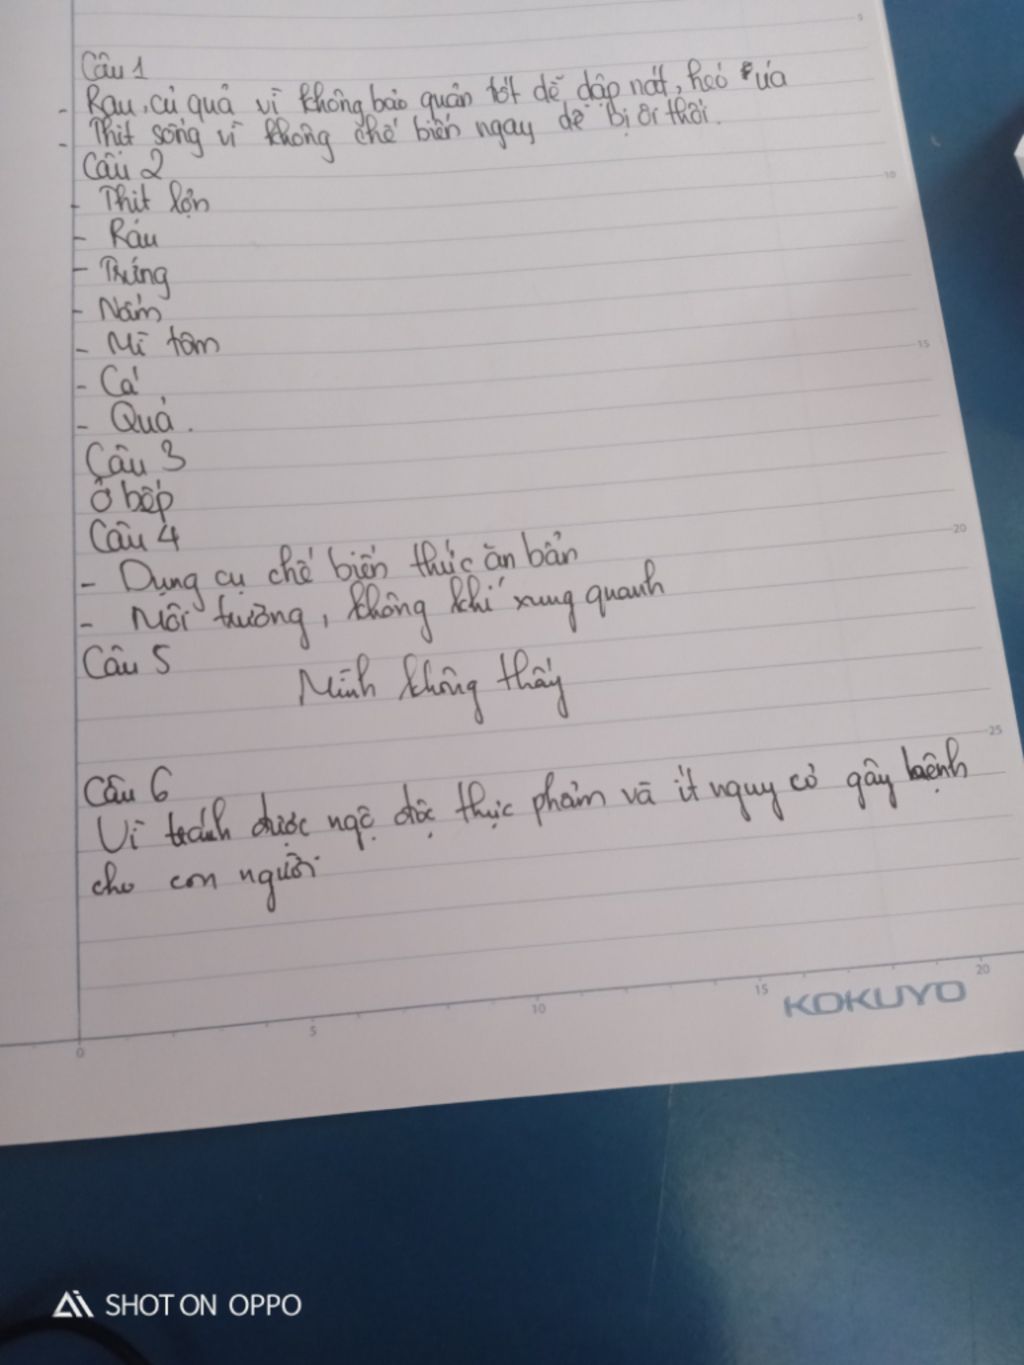 5
Câu 1
- Rau, củ quả vì không bảo quản tốt dễ dập nát, héo úa
- Thịt sống vì không chế biến ngay dễ bị ôi thôi.
Câu 2
10
- Thịt lợn
- Ráu
- Trứng
- Nấm
- Mì tôm
15
- Cá
- Quả.
Câu 3
Ở bếp
Câu 4
20
- Dụng cụ chế biến thức ăn bẩn
- Môi trường, không khí xung quanh
Câu 5
Mình không thấy
25
Câu 6
Vì tránh được ngộ độc thực phẩm và ít nguy cơ gây bệnh
cho con người.
0 5 10 15 20
KOKUYO
SHOT ON OPPO